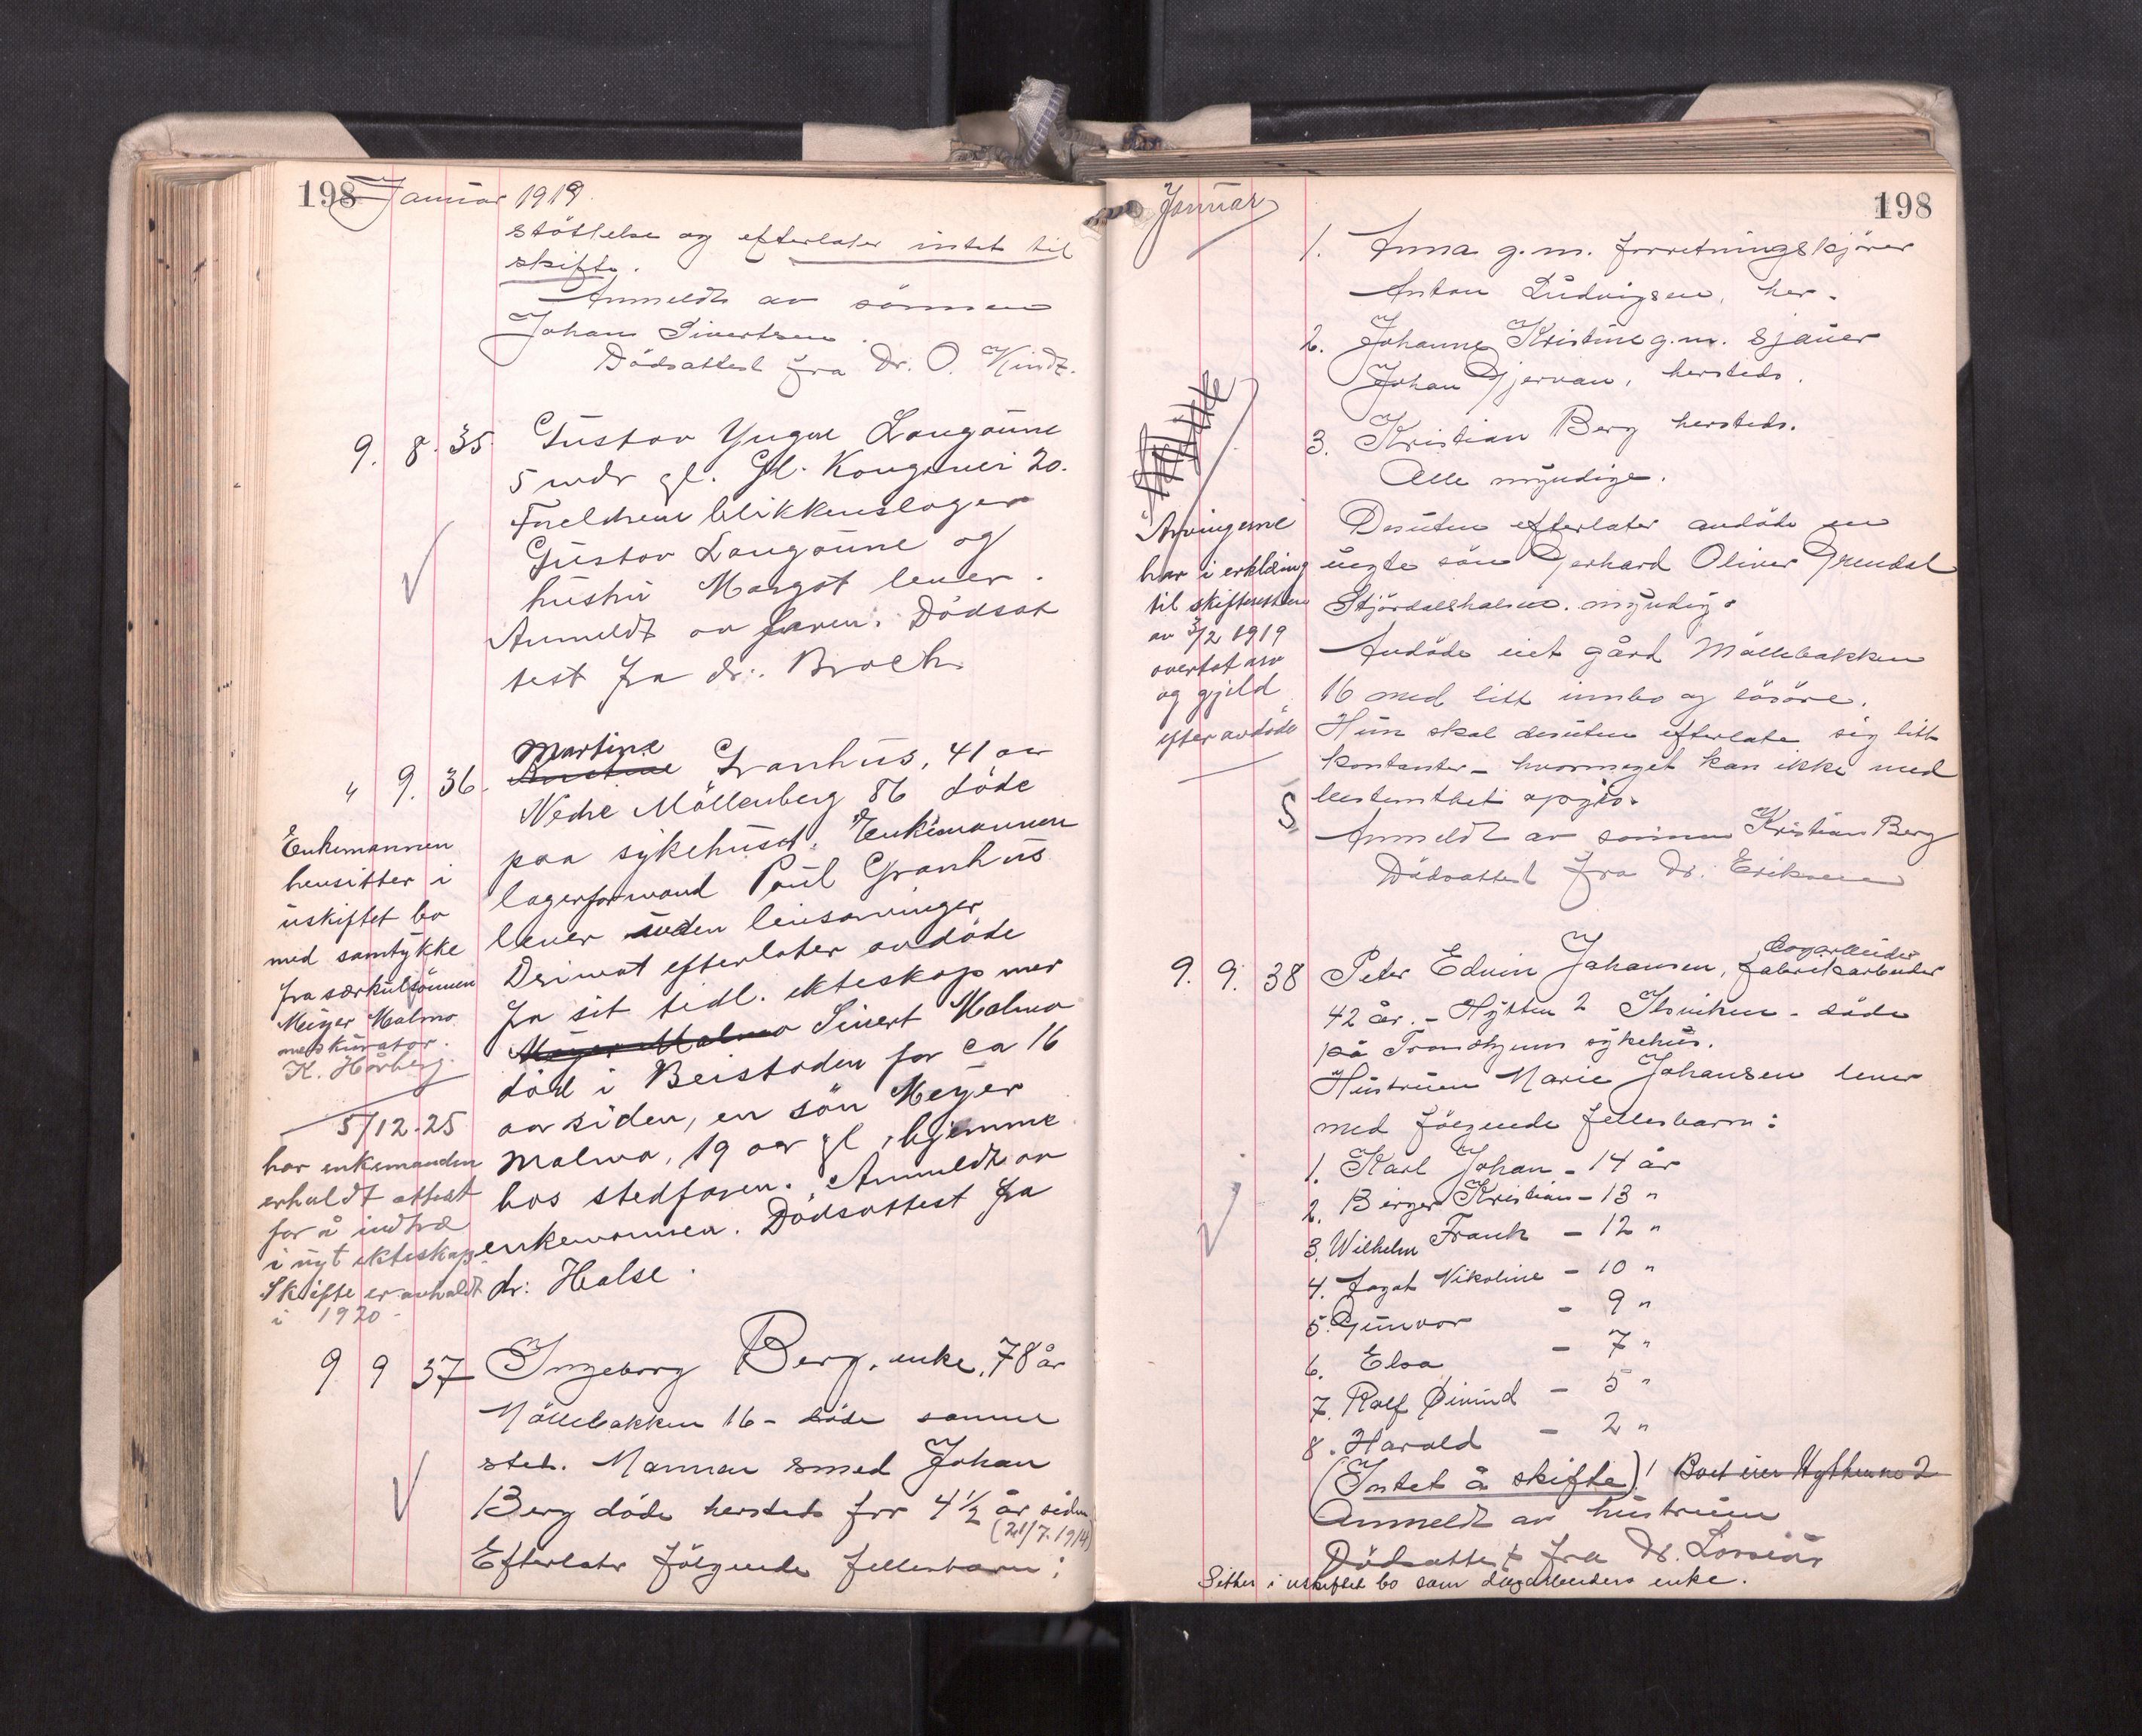 198 Januar 1919
støttelse og efterlater intet til
skifte.
Anmeldt av sönnen
Johan Sivertsen.
Dödsattest fra Dr. O. Kindt.
9. 8. 35 Gustav Yngve Langöune
5 mdr gl. Gl. Kongevei 20.
Foreldrene blikkenslager
Gustav Langöune og
hustru Margot lever.
Anmeldt av faren. Dödsat
test fra dr. Broch
" 9. 36. Martine Granhus, 41 aar
Nedre Möllenberg 86 döde
paa sykehuset. Enkemannen
lagerformand Paul Granhus
lever uden livsarvinger
Desuat efterlater avdöde
fra sit tidl. ekteskap mer
Meyer Malmo Sivert Malmo
död i Beistaden for ca 16
aar siden, en sön Meyer
Malmo, 19 aar gl, hjemme
hos stedfaren. Anmeldt av
enkemannen. Dödsattest fra
dr: Halse.
Enkemannen
hensitter i
uskiftet bo
med samtykke
fra særkulsönnen
Meyer Malmo
med kurator.
K. Hårberg.
5/12-25
har enkemanden
erholdt attest
for å indtræ
i nyt ekteskap
Skifte er avholdt
i 1920-
9 9 37 Ingeborg Berg, enke, 78 år
Möllebakken 16 - döde samme
sted. Mannen smed Johan
Berg döde hersteds for 4 1/2 år siden
(21/7. 1914)
Efterlater fölgende fellesbarn:
Januar 198
1. Anna g.m. forretningskjörer
Anton Ludvigsen, her.
2. Johanne Kristine g.m. sjauer
Johan Gjervan, hersteds.
3. Kristian Berg hersteds.
Alle myndige.
Desuten efterlater avdöde en
uegte sön Gerhard Oliver Grendal
Stjördalshalsen. myndig.
Avdöde eiet gård Möllebakken
16 med litt innbo og lösöre.
Hun skal desuten efterlate sig litt
kontanter - hvormeget kan ikke med
bestemthet opgis.
S
Anmeldt av sönnen Kristian Berg
Dödsattest fra Dr. Eriksen
Arvingerne
har i erklæring
til skifteretten
av 3/2 1919
overtat arv
og gjeld
efter avdöde
9. 9. 38 Peter Edvin Johansen, fabrikarbeider
Dagarbeider
42 år. - Hytten 2 Ilsviken - döde
på Trondhjems sykehus.
Hustruen Marie Johansen lever
med fölgende fellesbarn:
1. Karl Johan - 14 år
2. Birger Kristian - 13 "
3. Wilhelm Frank - 12 "
4. Aagot Nikoline - 10 "
5. Gunvor - 9 "
6. Elsa - 7 "
7. Rolf Øivind - 5 "
8. Harald - 2 "
(Intet å skifte)! Boet eier Hytten no 2
Anmeldt av hustruen
Dödsattest fra Dr. Lossius
Sitter i uskiftet bo som dagarbeiders enke.